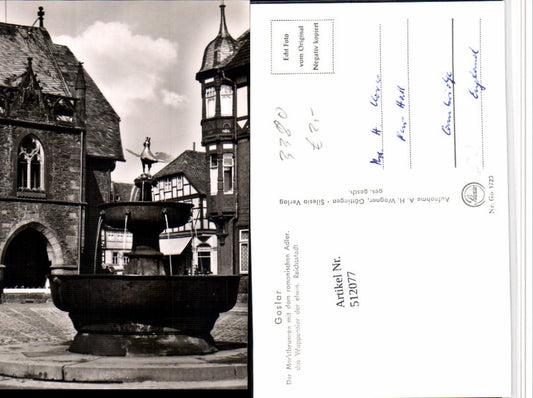 Echt Foto
vom Original
Negativ kopiert
3380
€ 2,-
H.
New Hall
Cambridge
England
Aufnahme A. H. Wagner, Göttingen - Silesia Verlag
ges. gesch.
Nr. Go 5723
Goslar
Der Marktbrunnen mit dem romanischen Adler,
das Wappentier der ehem. Reichsstadt
Artikel Nr.
512077